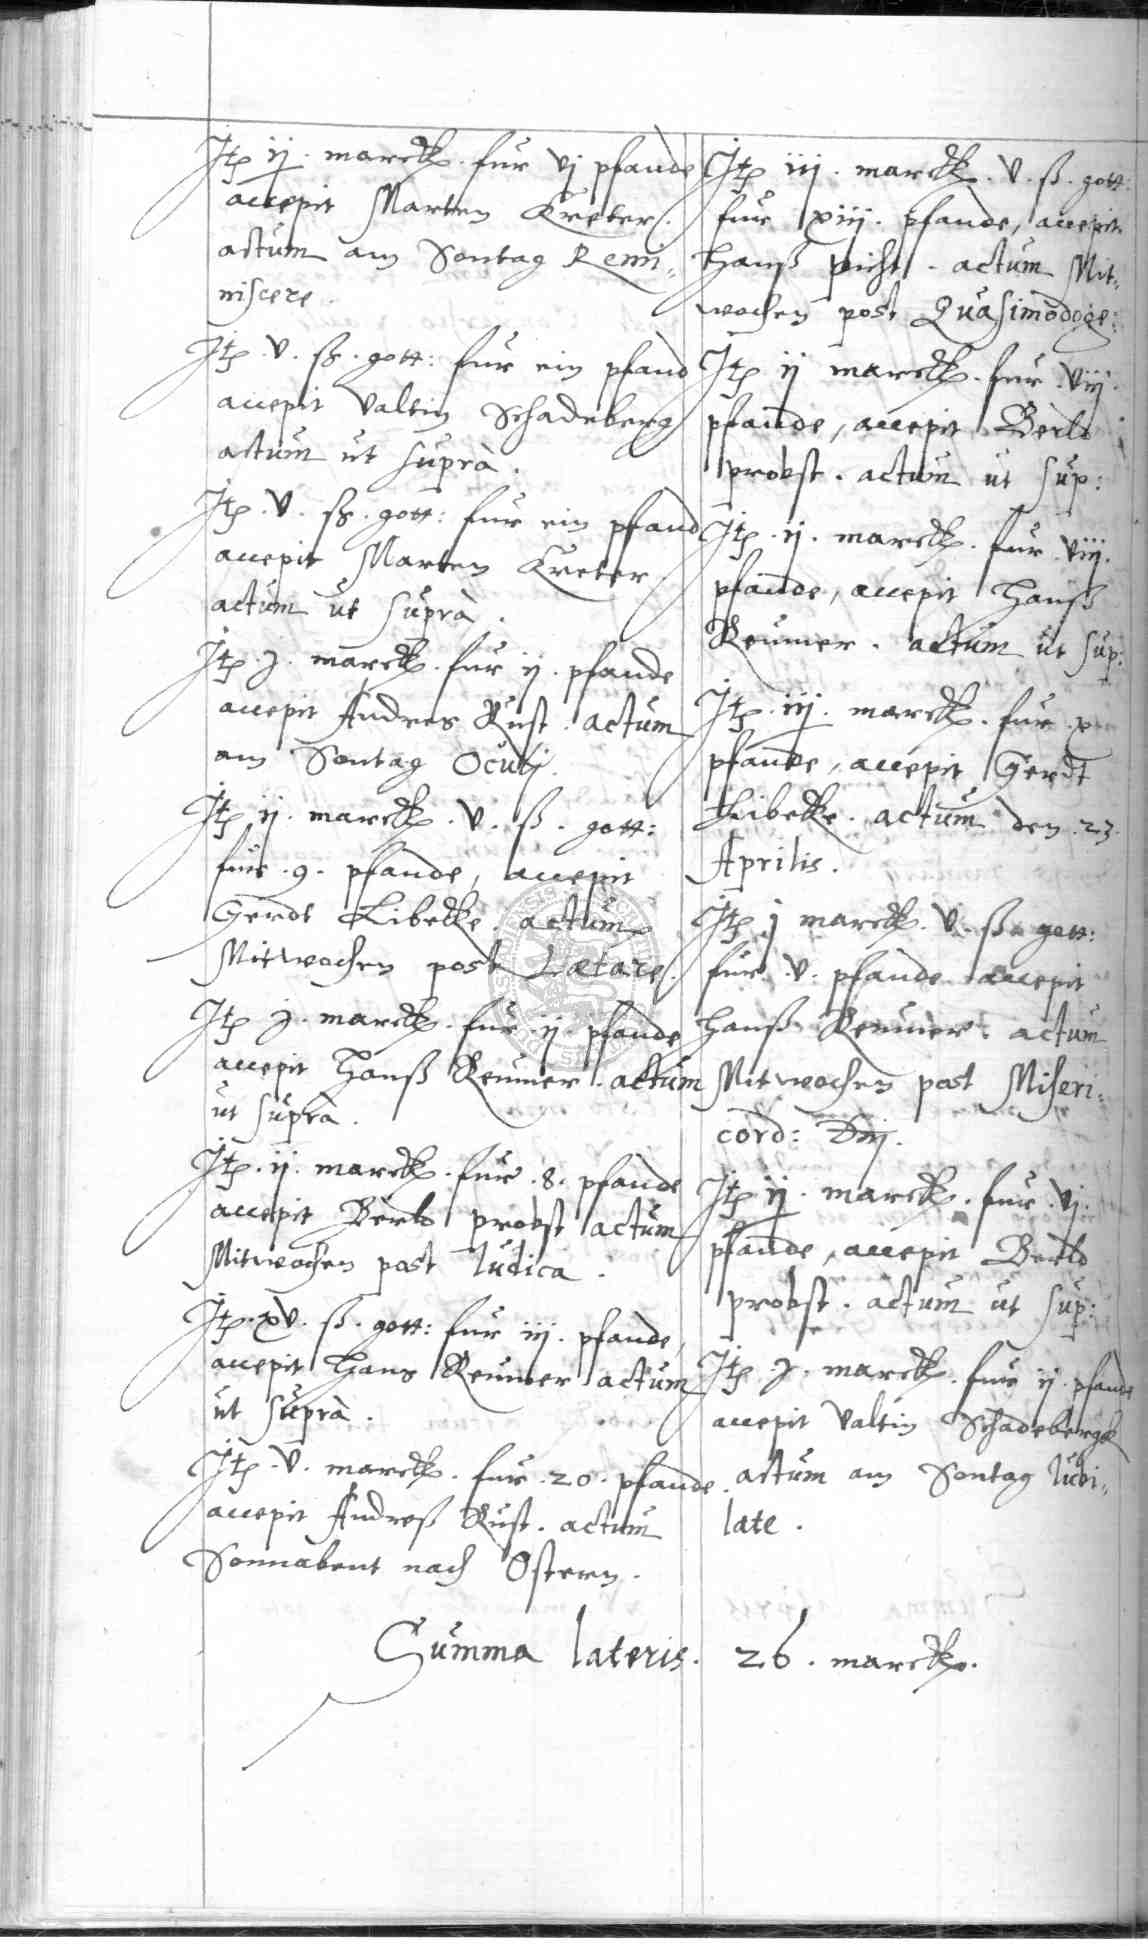 Itp ij. marck. fur vj pfande
accepit Marten Kreter.
actum am Sontag Remi„
niscere.
Itp. v. ß. gott: fur ein pfand
accepit Valtin Schadeberg
actum ut suprà.
Itp. v. ß. gott: fur ein pfand
accepit Marten Kreter
actum ut suprà.
Itp. j. marck. fur ij. pfande
accepit Andres Rust. actum
am Sontag Oculj.
Itp ij. marck. v. ß. gott:
fur .9. pfande, accepit
Gerdt Libecke. actum
Mitwochen post Lætare.
Itp j. marck. fur ij. pfande
accepit Hanß Reumer. actum
ut suprà.
Itp. ij. marck. fur .8. pfande
accepit Berld probst actum
Mitwochen post Iudica.
Itp. xv. ß. gott: fur iij. pfande,
accepit Hans Reumer actum
ut suprà.
Itp. v. marck. fur .20. pfande.
accepit Andreß Rust. actum
Sonnabent nach Ostern.
Itp iij. marck. v. ß. gott:
fur xiij. pfande, accepit
Hanß picht. actum Mit„
wochen post Quasimodoge:
Itp ij marck. fur viij.
pfande, accepit Berld
probst. actum ut sup:
Itp. ij. marck. fur viij.
pfande, accepit Hanß
Reumer. actum ut sup:
Itp. iij. marck. fur x
pfande, accepit Gerdt
Libecke. actum den .23.
Aprilis.
Itp j marck. v. ß. gott:
fur v. pfande accepit
Hanß Reumer. actum
Mitwochen post Miseri„
cord: Dnj.
Itp ij. marck. fur vj.
pfande, accepit Berld
probst. actum ut sup:
Itp. j. marck. fur ij. pfande
accepit Valtin Schadebergk
actum am Sontag Iubi„
late.
Summa lateris. 26. marck.